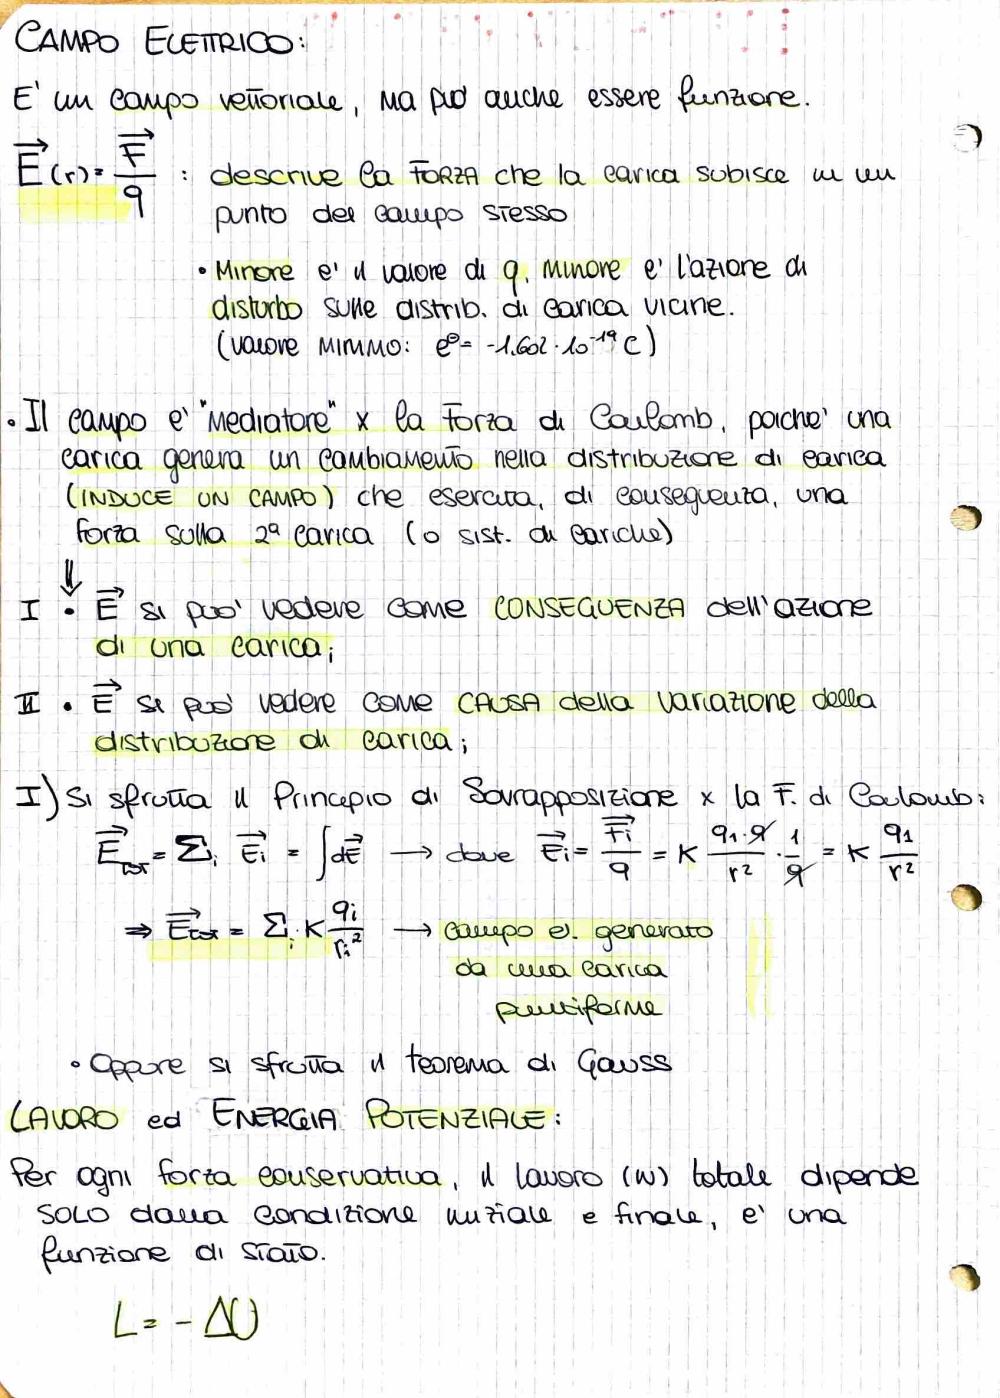 CAMPO ELETTRICO:
E' un campo vettoriale, ma può anche essere funzione.
E⃗(r) = F⃗/q : descrive la FORZA che la carica subisce in un
punto del campo stesso
• Minore e' il valore di q, minore e' l'azione di
disturbo sulle distrib. di carica vicine.
(valore MINIMO: e⁰= -1.602·10⁻¹⁹ C)
• Il campo e' "mediatore" x la Forza di Coulomb, poiche' una
carica genera un cambiamento nella distribuzione di carica
(INDUCE UN CAMPO) che esercita, di conseguenza, una
forza sulla 2ª carica (o sist. di cariche)
⇓
I • E⃗ si puo' vedere come CONSEGUENZA dell'azione
di una carica;
II • E⃗ si puo' vedere come CAUSA della variazione della
distribuzione di carica;
I) Si sfrutta il Principio di Sovrapposizione x la F. di Coulomb:
E⃗tot = Σi E⃗i = ∫dE⃗ → dove E⃗i = F⃗i/q = K q1·q/r² · 1/q = K q1/r²
⇒ E⃗tot = Σi K qi/ri² → campo el. generato
da una carica
puntiforme
• Oppure si sfrutta il teorema di Gauss
LAVORO ed ENERGIA POTENZIALE:
Per ogni forza conservativa, il lavoro (W) totale dipende
SOLO dalla condizione iniziale e finale, e' una
funzione di stato.
L = - ΔU